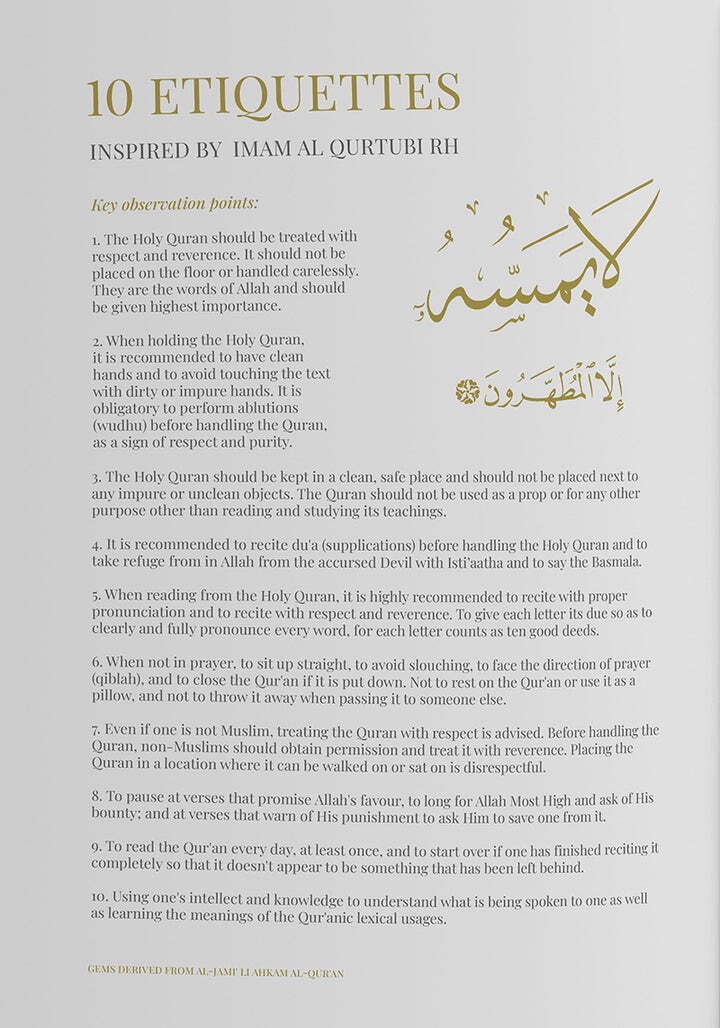 10 ETIQUETTES
INSPIRED BY IMAM AL QURTUBI RH
Key observation points:
1. The Holy Quran should be treated with
respect and reverence. It should not be
placed on the floor or handled carelessly.
They are the words of Allah and should
be given highest importance.
2. When holding the Holy Quran,
it is recommended to have clean
hands and to avoid touching the text
with dirty or impure hands. It is
obligatory to perform ablutions
(wudhu) before handling the Quran,
as a sign of respect and purity.
لَا يَمَسُّهُ
إِلَّا الْمُطَهَّرُونَ
3. The Holy Quran should be kept in a clean, safe place and should not be placed next to
any impure or unclean objects. The Quran should not be used as a prop or for any other
purpose other than reading and studying its teachings.
4. It is recommended to recite du'a (supplications) before handling the Holy Quran and to
take refuge from in Allah from the accursed Devil with Isti'aatha and to say the Basmala.
5. When reading from the Holy Quran, it is highly recommended to recite with proper
pronunciation and to recite with respect and reverence. To give each letter its due so as to
clearly and fully pronounce every word, for each letter counts as ten good deeds.
6. When not in prayer, to sit up straight, to avoid slouching, to face the direction of prayer
(qiblah), and to close the Qur'an if it is put down. Not to rest on the Qur'an or use it as a
pillow, and not to throw it away when passing it to someone else.
7. Even if one is not Muslim, treating the Quran with respect is advised. Before handling the
Quran, non-Muslims should obtain permission and treat it with reverence. Placing the
Quran in a location where it can be walked on or sat on is disrespectful.
8. To pause at verses that promise Allah's favour, to long for Allah Most High and ask of His
bounty; and at verses that warn of His punishment to ask Him to save one from it.
9. To read the Qur'an every day, at least once, and to start over if one has finished reciting it
completely so that it doesn't appear to be something that has been left behind.
10. Using one's intellect and knowledge to understand what is being spoken to one as well
as learning the meanings of the Qur'anic lexical usages.
GEMS DERIVED FROM AL-JAMI' LI AHKAM AL-QUR'AN